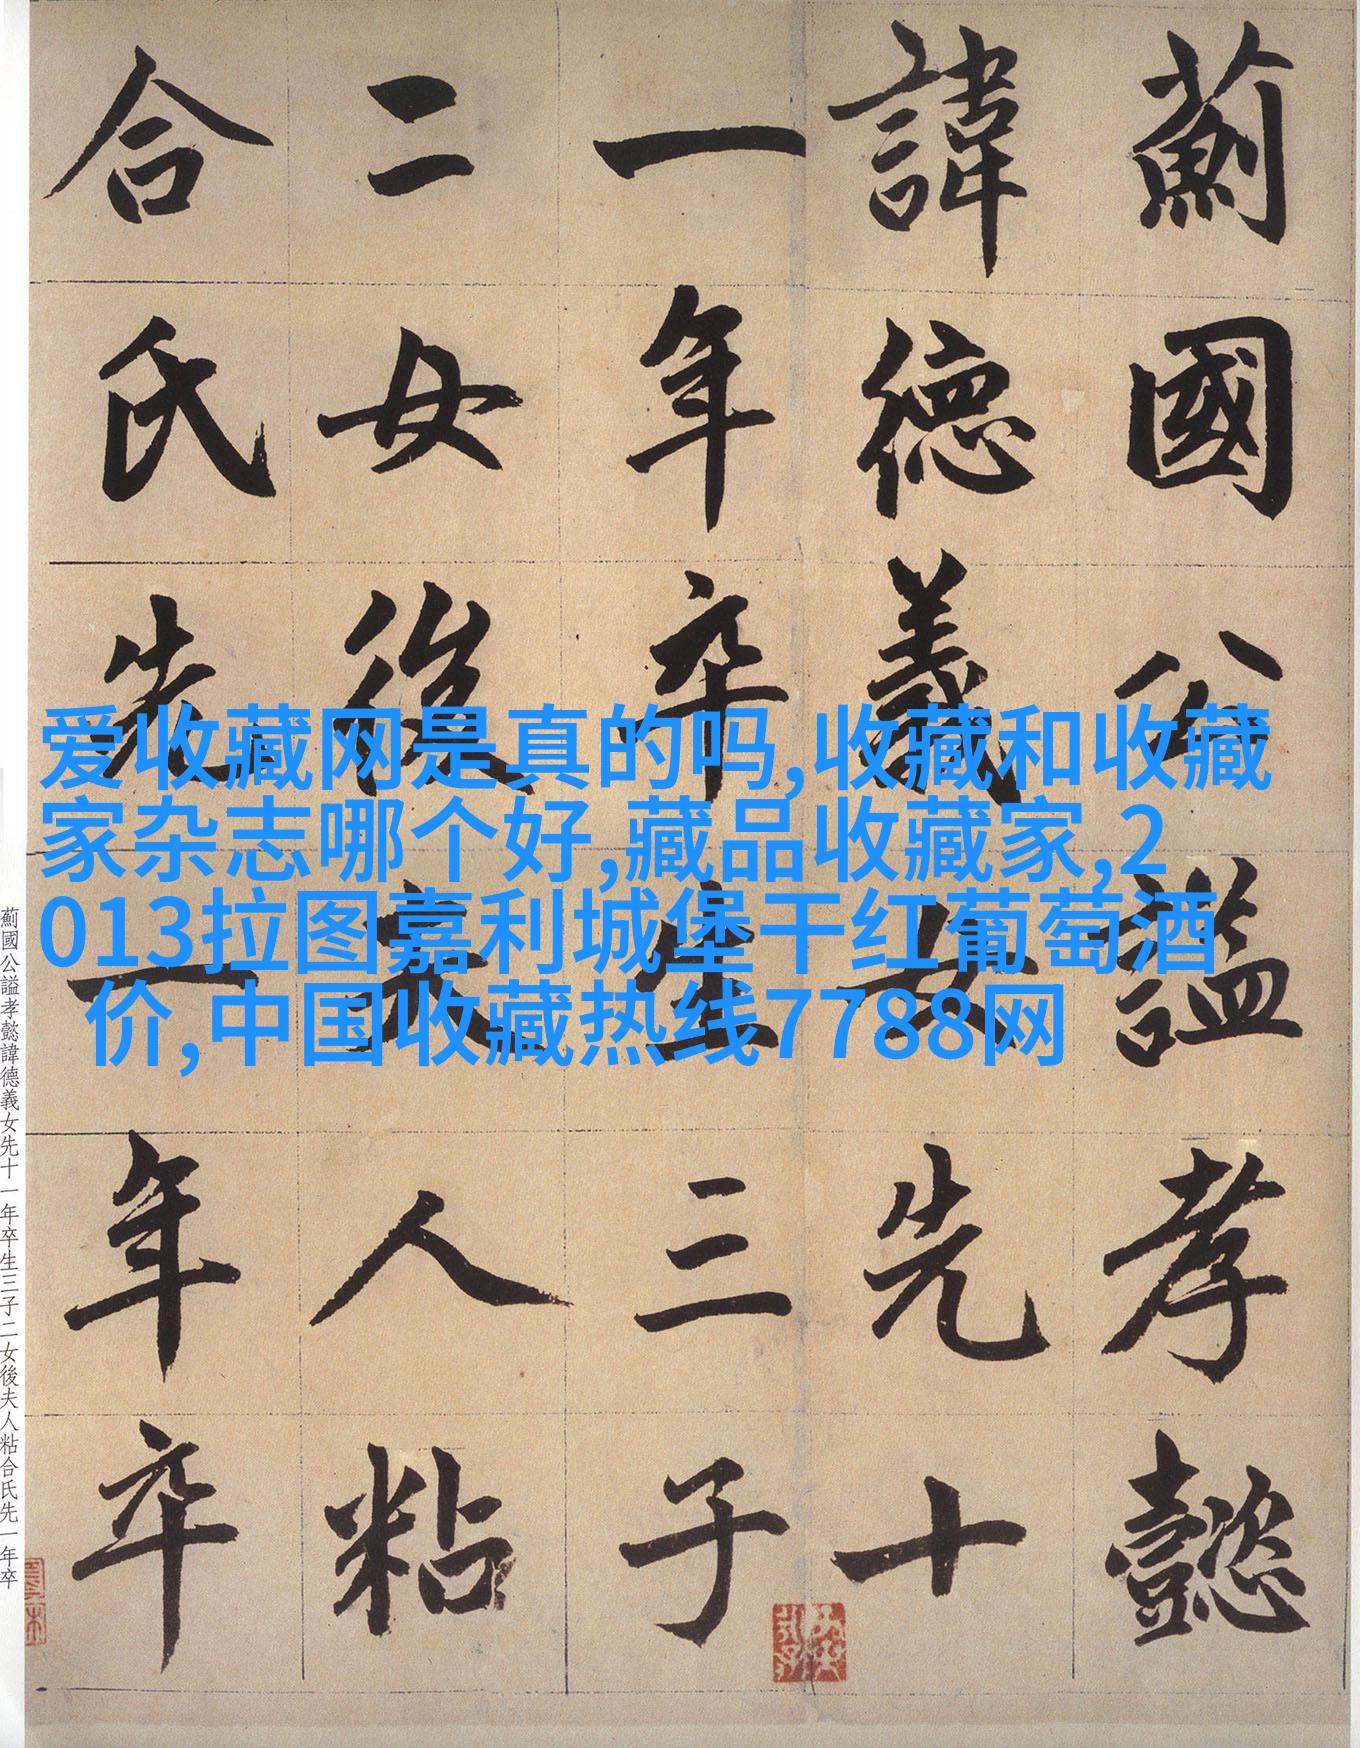 薊國公諡孝懿
諱德義女先十
一年卒生三子
二女後夫人粘
合氏先一年卒
爱收藏网是真的吗,收藏和收藏
家杂志哪个好,藏品收藏家,2
013拉图嘉利城堡干红葡萄酒
价,中国收藏热线7788网
薊國公諡孝懿諱德義女先十一年卒生三子二女後夫人粘合氏先一年卒